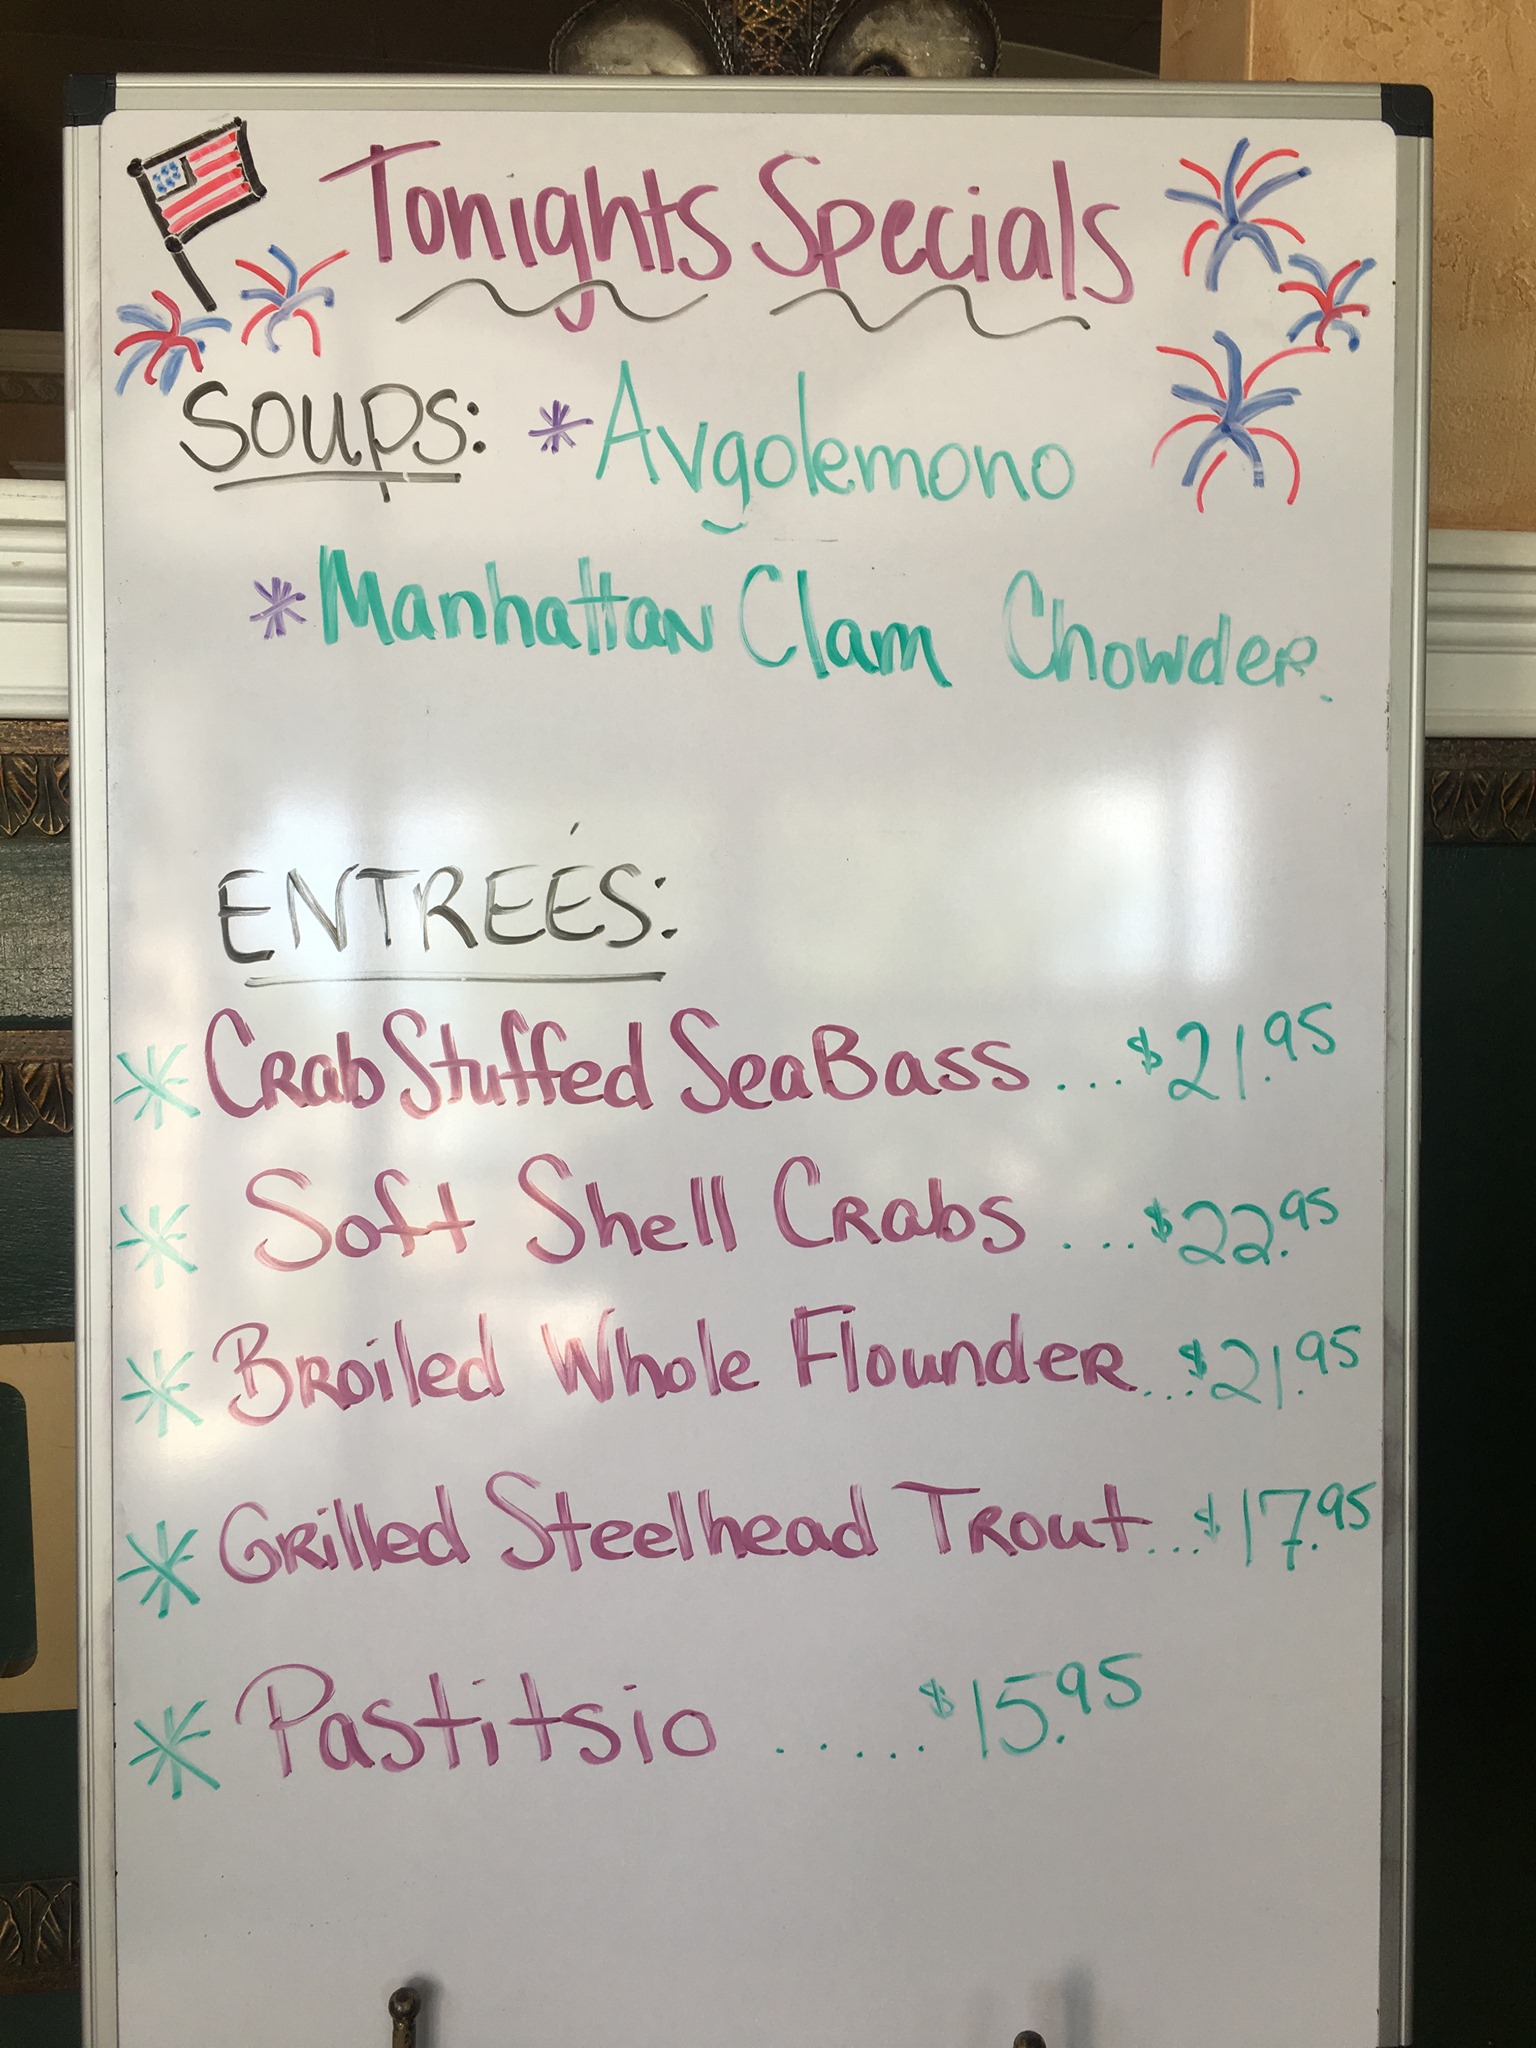 Tonights Specials
SOUPS: *Avgolemono
*Manhattan Clam Chowder.
ENTREÉS:
* Crab Stuffed Sea Bass ....$21.95
* Soft Shell Crabs ....$22.95
* Broiled Whole Flounder...$21.95
* Grilled Steelhead Trout...$17.95
* Pastitsio ......$15.95